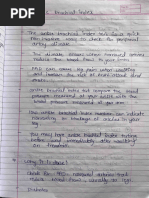 Ankle Brachial Index
The ankle brachial index test is a quick
way to check for peripheral
artery disease.
The disease occurs when narrowed arteries
reduce the blood flow in your limbs.
PAD can cause leg pain when walking
and increases the risk of heart attack and
The ankle brachial index test compares the blood
pressure measured at your ankle with the
blood pressure measured at your arm.
Low ankle brachial index number can indicate
narrowing or blockage of arteries in your
leg.
You may have ankle brachial index testing
before and immediately after walking
on treadmill.
Why It's done!
Check for the narrowed arteries that
reduce blood flow, usually to the
Diabetes